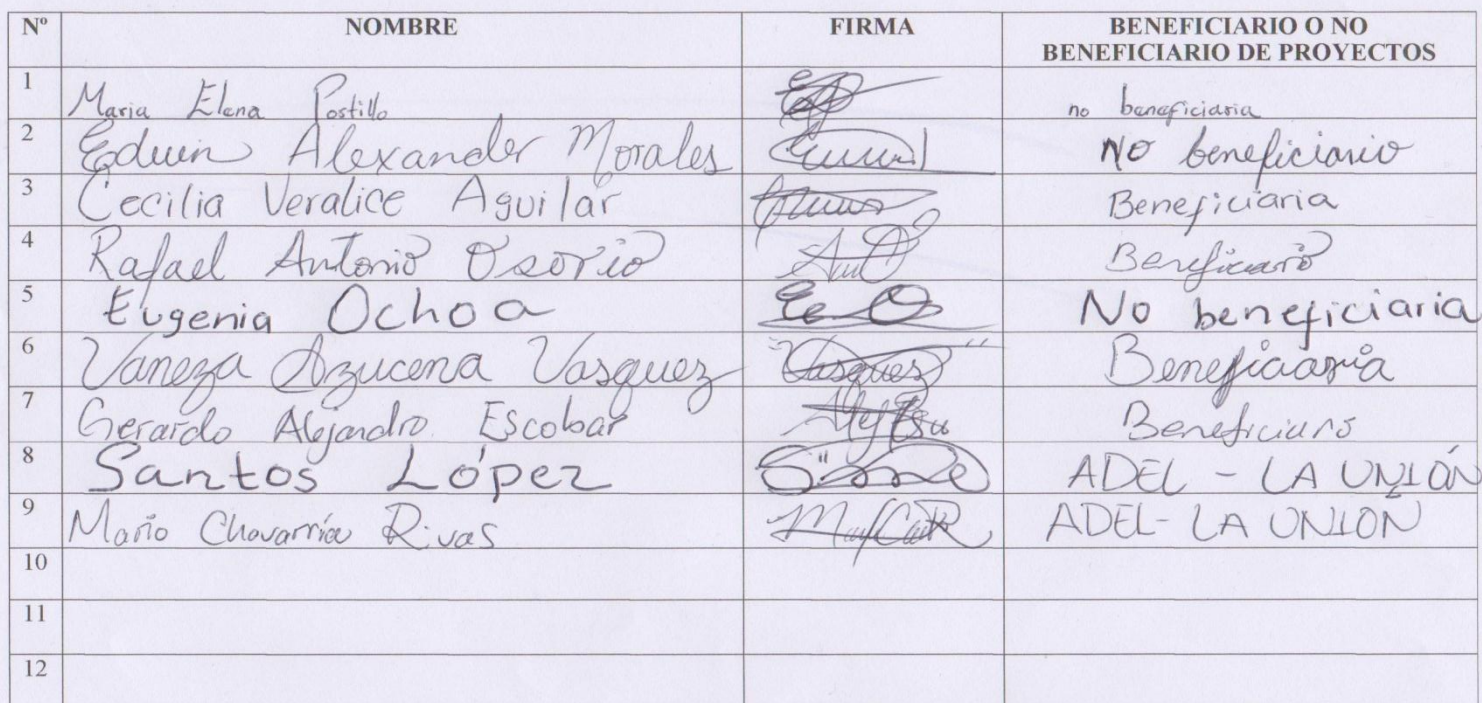 Nº NOMBRE FIRMA BENEFICIARIO O NO
BENEFICIARIO DE PROYECTOS
1 Maria Elena Postillo no beneficiaria
2 Edwin Alexander Morales No beneficiario
3 Cecilia Veralice Aguilar Beneficiaria
4 Rafael Antonio Osorio Beneficiario
5 Eugenia Ochoa E O No beneficiaria
6 Vaneza Azucena Vasquez Vasquez Beneficiaria
7 Gerardo Alejandro Escobar Beneficiario
8 Santos López ADEL - LA UNIÓN
9 Mario Chavarría Rivas ADEL- LA UNIÓN
10
11
12